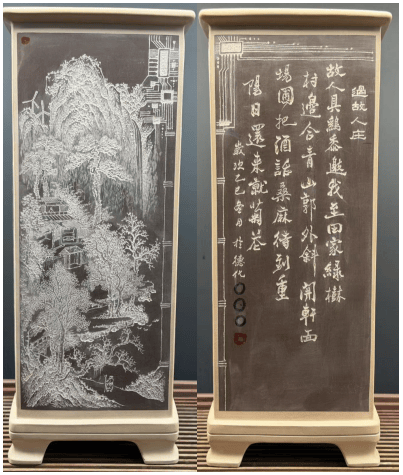 過故人庄
故人具鷄黍邀我至田家綠樹
村邊合青山郭外斜開軒面
場圃把酒話桑麻待到重
陽日還來就菊花
歲次乙巳冬月於德化